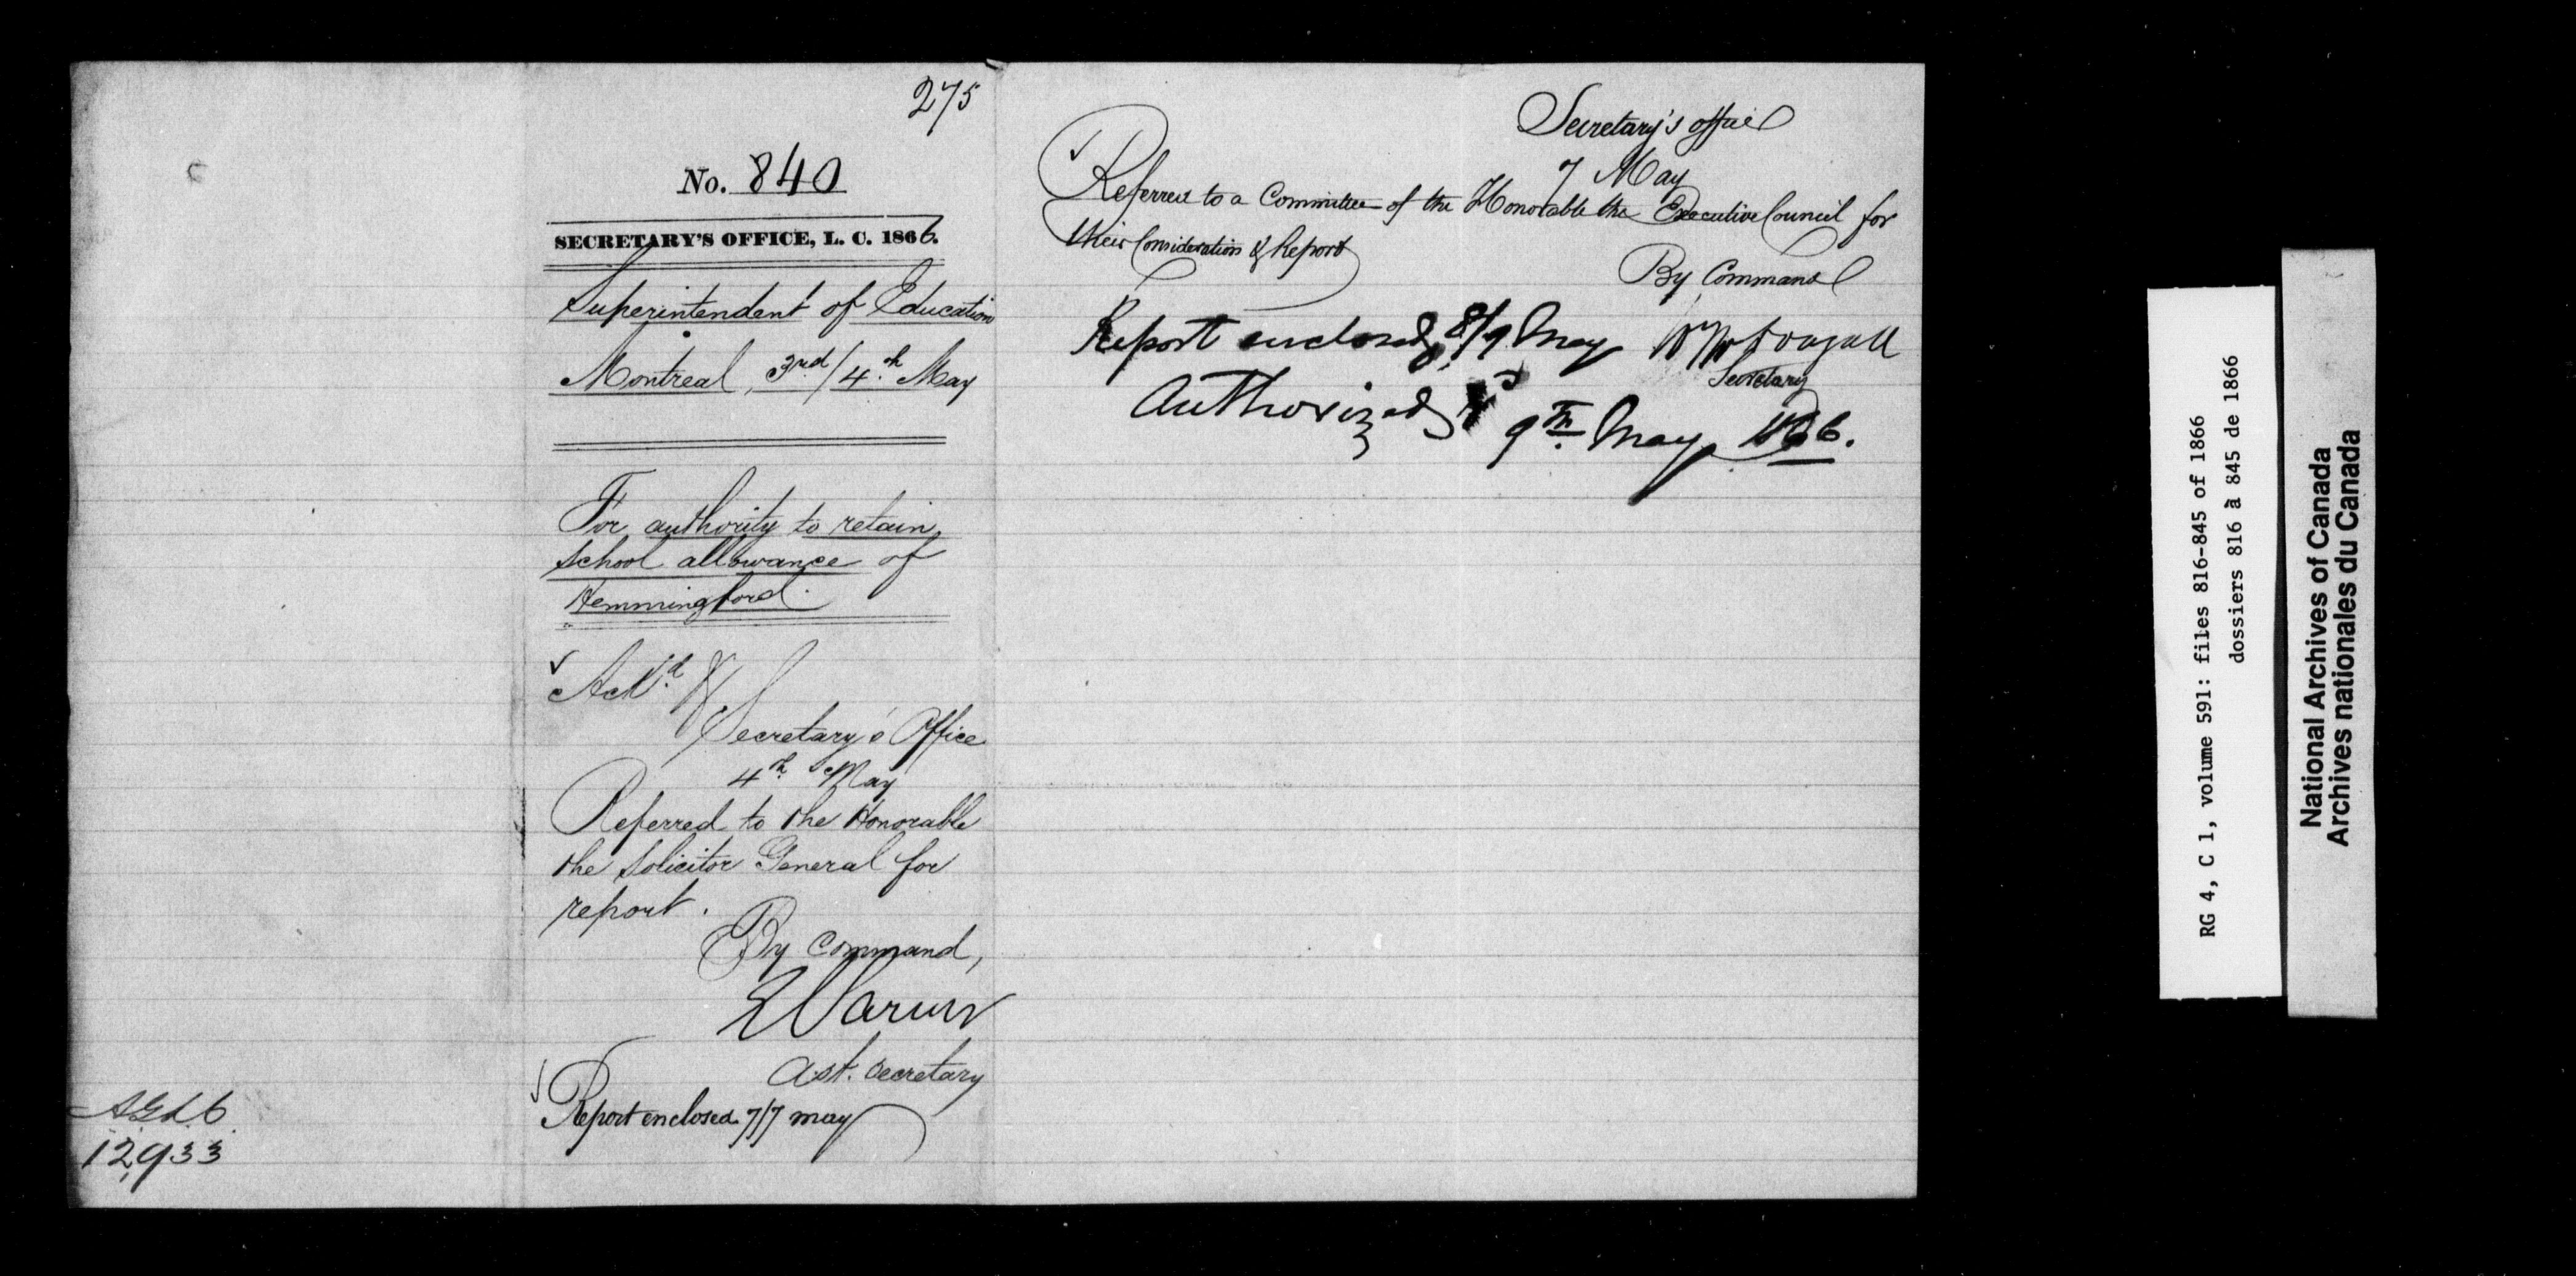 275
No. 840
SECRETARY'S OFFICE, L. C. 1866.
Superintendent of Education
Montreal, 3rd/4th May
For authority to retain
school allowance of
Hemmingford.
Ackd
Secretary's Office
4th May
Referred to the Honorable
the Solicitor General for
report.
By Command,
Ast. Secretary
Report enclosed 7/7 may
12,933
Secretary's office
7 May
Referred to a Committee of the Honorable the Executive Council for
their Consideration & Report
By Command
Report enclosed, 8/9 May
Wm McDougall
Secretary
Authorized
9th May 1866.
RG 4, C 1, volume 591: files 816-845 of 1866
dossiers 816 à 845 de 1866
National Archives of Canada
Archives nationales du Canada